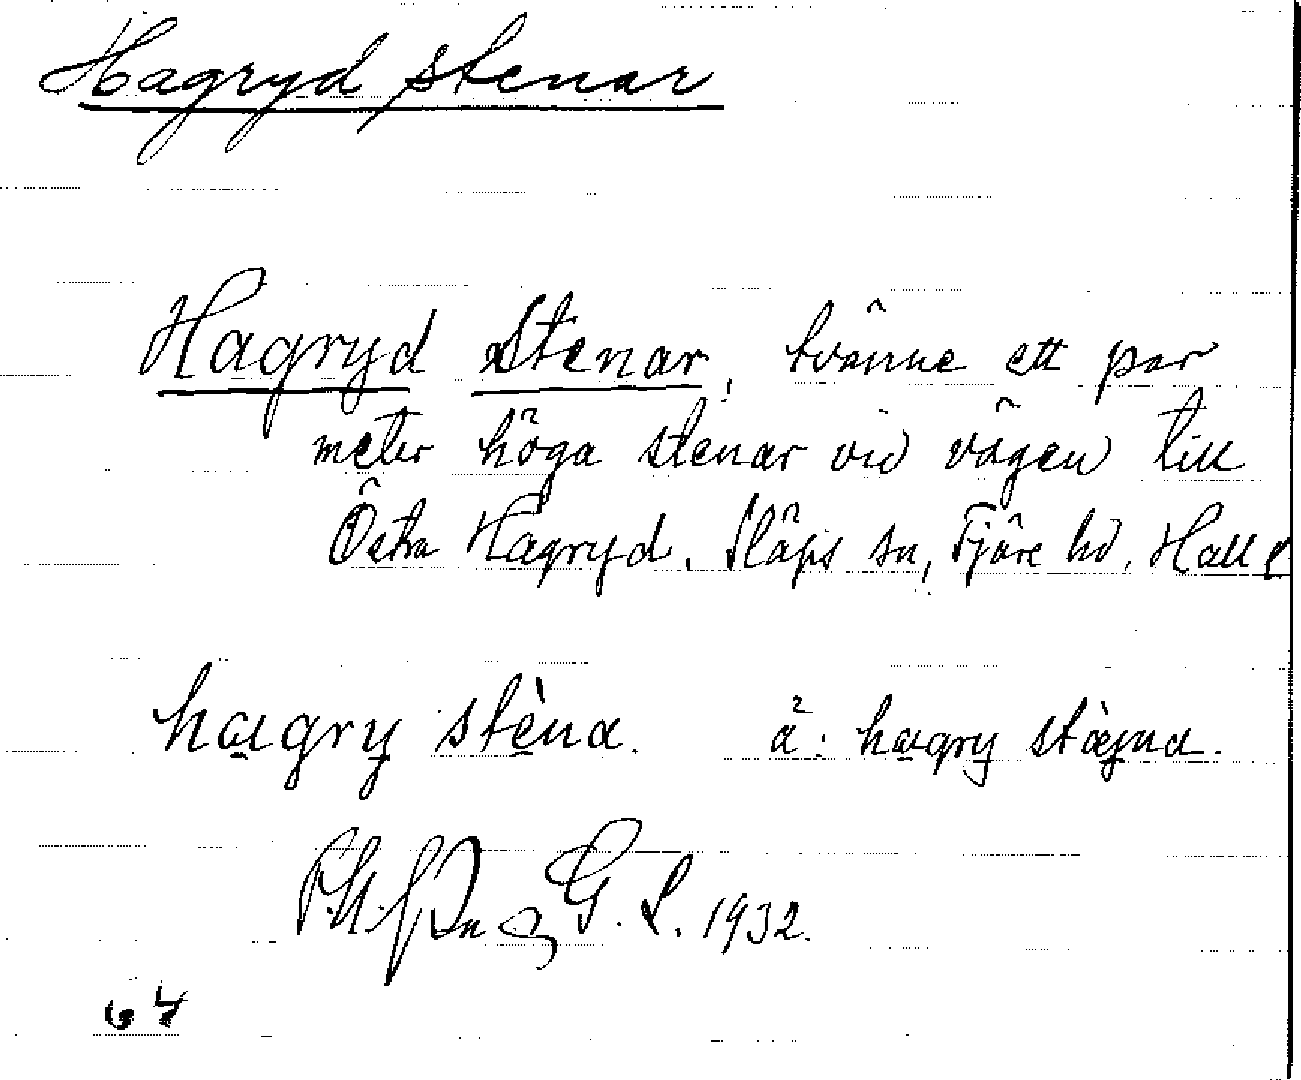 Hagryd stenar
Hagryd Stenar, tvänne ett par
meter höga stenar vid vägen till
Östra Hagryd. Släps sn, Fjäre hd. Hall
hagry stèna. ä: hagry stæ̀jna.
G. L. 1932.
64